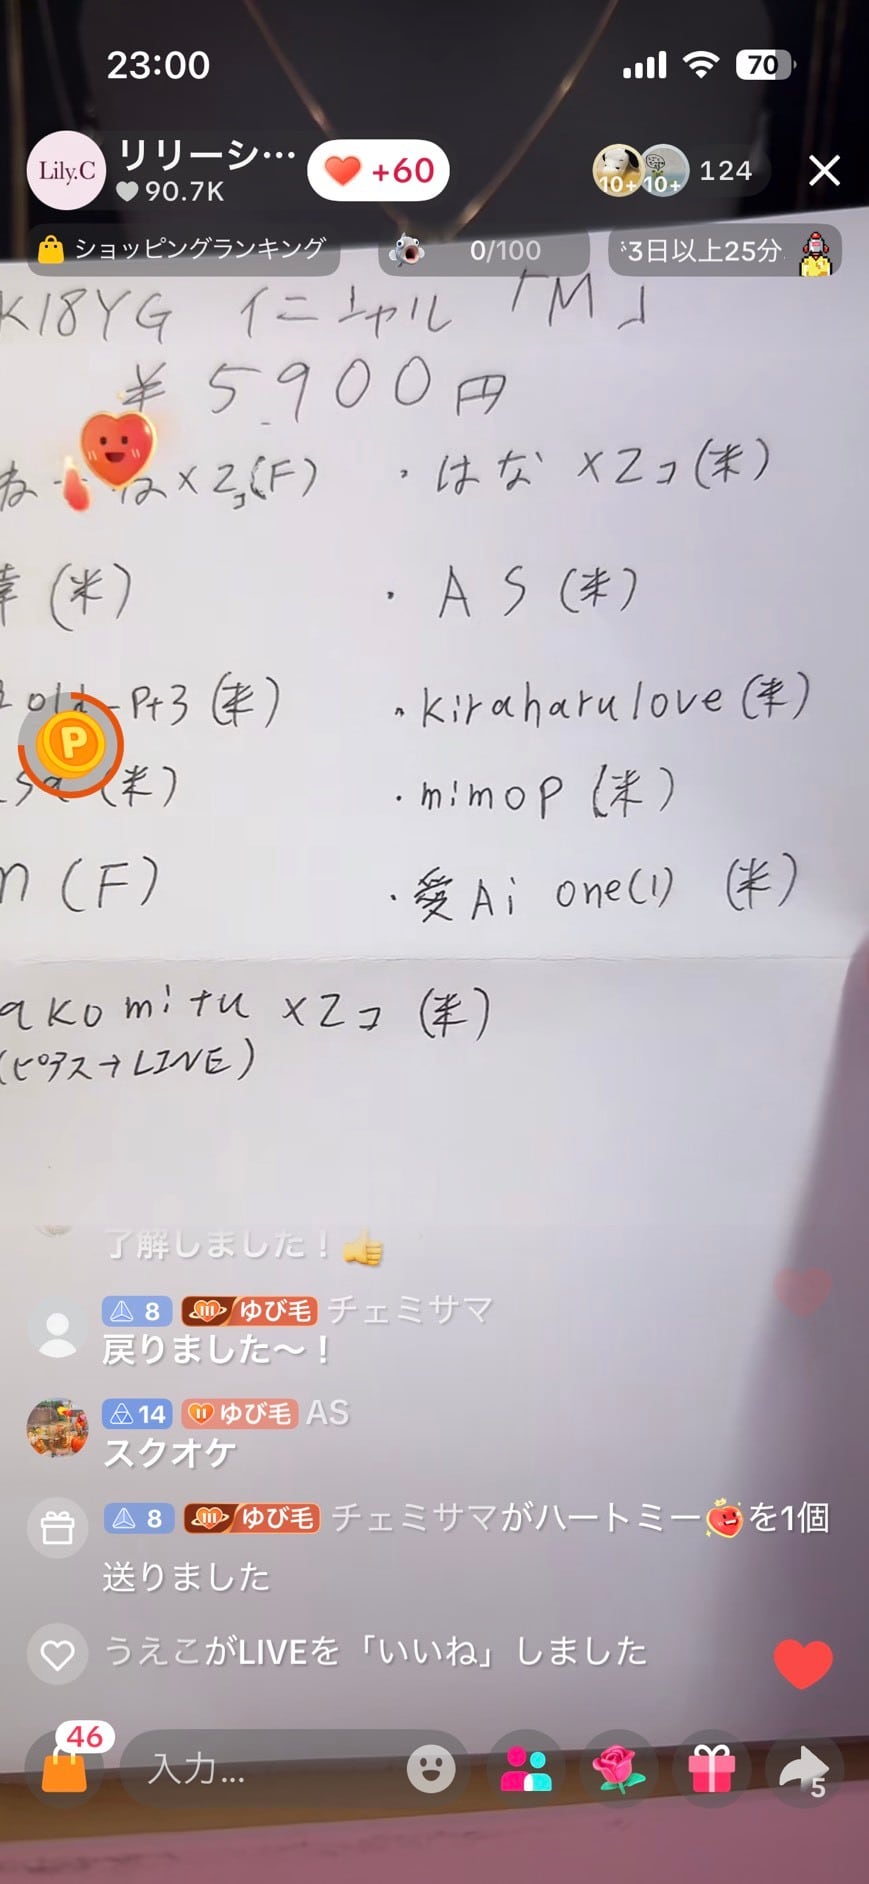 23:00
70
Lily.C
リリーシ…
90.7K
+60
10+
10+
124
ショッピングランキング
0/100
3日以上25分
K18YG イニシャル「M」
¥5900円
ね
は×2コ(F)
・はな ×2コ(米)
(米)
・AS(米)
old-Pt3(米)
・kiraharulove(米)
P
sa(米)
・mimop(米)
n(F)
・愛Ai one(1) (米)
akomitu ×2コ(米)
(ピアス→LINE)
了解しました！👍
8 ゆび毛 チェミサマ
戻りました〜！
14 II ゆび毛 AS
スクオケ
8 III ゆび毛 チェミサマがハートミーを1個
送りました
うえこがLIVEを「いいね」しました
46
入力...
5